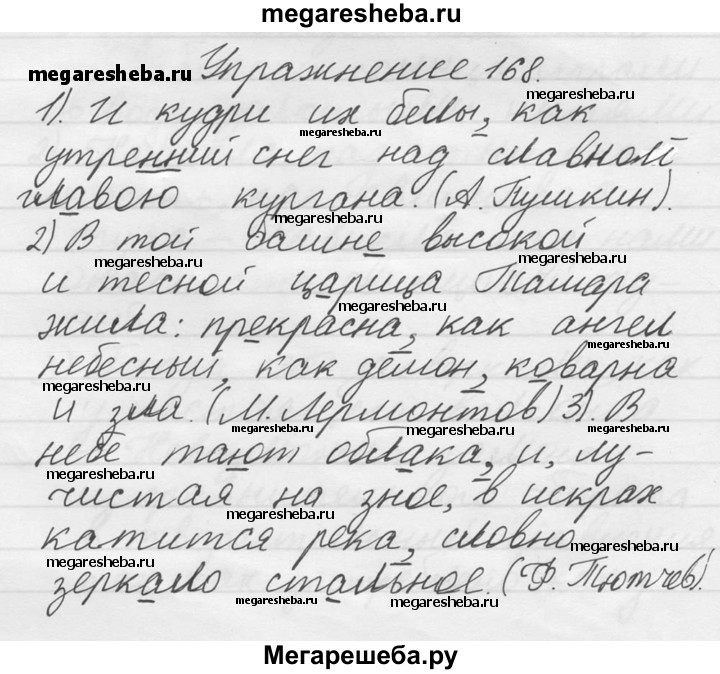 megaresheba.ru
Упражнение 168.
megaresheba.ru
megaresheba.ru
1). И кудри их белы, как
megaresheba.ru
утренний снег над славной
megaresheba.ru
megaresheba.ru
главою кургана. (А. Пушкин).
megaresheba.ru
2) В той башне высокой
megaresheba.ru
megaresheba.ru
и тесной царица Тамара
megaresheba.ru
жила: прекрасна, как ангел
megaresheba.ru
небесный, как демон, коварна
megaresheba.ru
megaresheba.ru
и зла. (М. Лермонтов) 3). В
megaresheba.ru
megaresheba.ru
небе тают облака, и, лу-
megaresheba.ru
чистая на зное, в искрах
megaresheba.ru
катится река, словно
megaresheba.ru
megaresheba.ru
зеркало стальное. (Ф. Тютчев).
megaresheba.ru
megaresheba.ru
Мегарешеба.ру